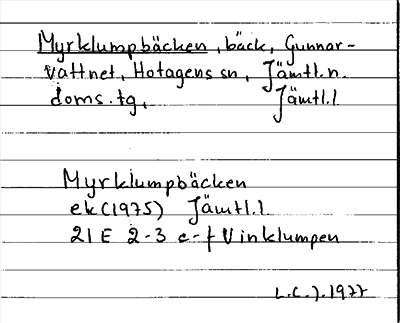 Myrklumpbäcken, bäck, Gunnar-
vattnet, Hotagens sn, Jämtl.n.
doms.tg, Jämtl.l
Myrklumpbäcken
ek(1975) Jämtl.l
21E 2-3 e-f Vinklumpen
L.C.J.1977